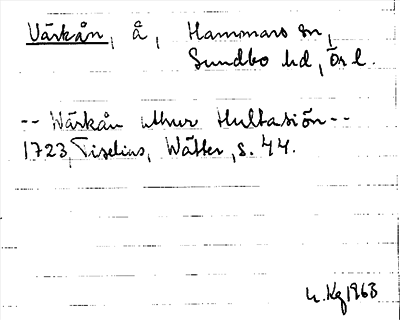 Värkån, å, Hammars sn,
Sundbo hd, Ör l.
-- Wärkån uthur Hultasiön --
1723, Tiselius, Wätter, s. 44.
1963